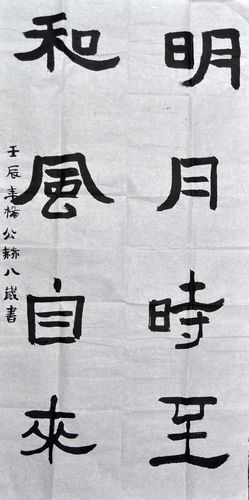 明月時至
和風自來
壬辰春楊公赫八歲書